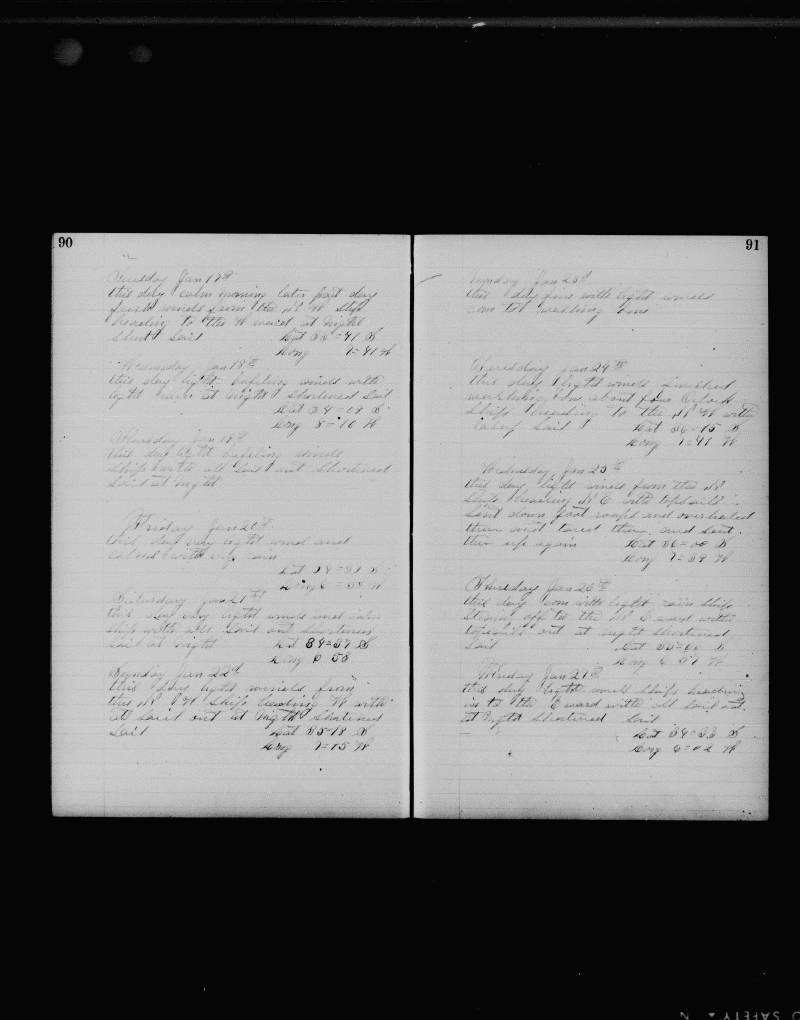 90
Tuesday Jan 17th
this day calm morning later part day
fresh winds from the N W Ship
heading to the W ward at Night
Short Sail Lat 33=41 S
Long 7=41 W
Wednesday Jan 18th
this day light bafeling winds with
light rain at Night Shortened Sail
Lat 34=09 S
Long 8=10 W
Thursday Jan 19th
this day light bafeling winds
Ship with all Sail out Shortened
Sail at Night
Friday Jan 20th
this day very light wind and
calms with rain
Lat S
Long W
Saturday Jan 21st
this day very light winds and calm
Ship with all Sail out Shortened
Sail at Night Lat 34=37 S
Long 6 53
Sunday Jan 22d
this day light winds from
the N W Ship heading W with
all Sail out at Night Shortened
Sail Lat 35=18 S
Long 7=15 W
91
Monday Jan 23d
this day fine with light winds
bone
Tuesday Jan 24th
this day light winds finished
bone about four Oclock
Ship heading to the N W with
Sail Lat 36=15 S
Long 7=41 W
Wednesday Jan 25th
this day light winds from the N
Ship heading N E with topsails
Sent down foot roaps and overhaled
them and tared them and Sent
them up again Lat 36=00 S
Long 7=39 W
Thursday Jan 26th
this day with light rain Ship
off to the N E ward with
topsails out at night Shortened
Sail Lat S
Long 6 51 W
Friday Jan 27th
this day light winds Ship heading
to the E ward with all Sail out
at Night Shortened Sail
Lat 34=33 S
Long 6=02 W
SAFETY